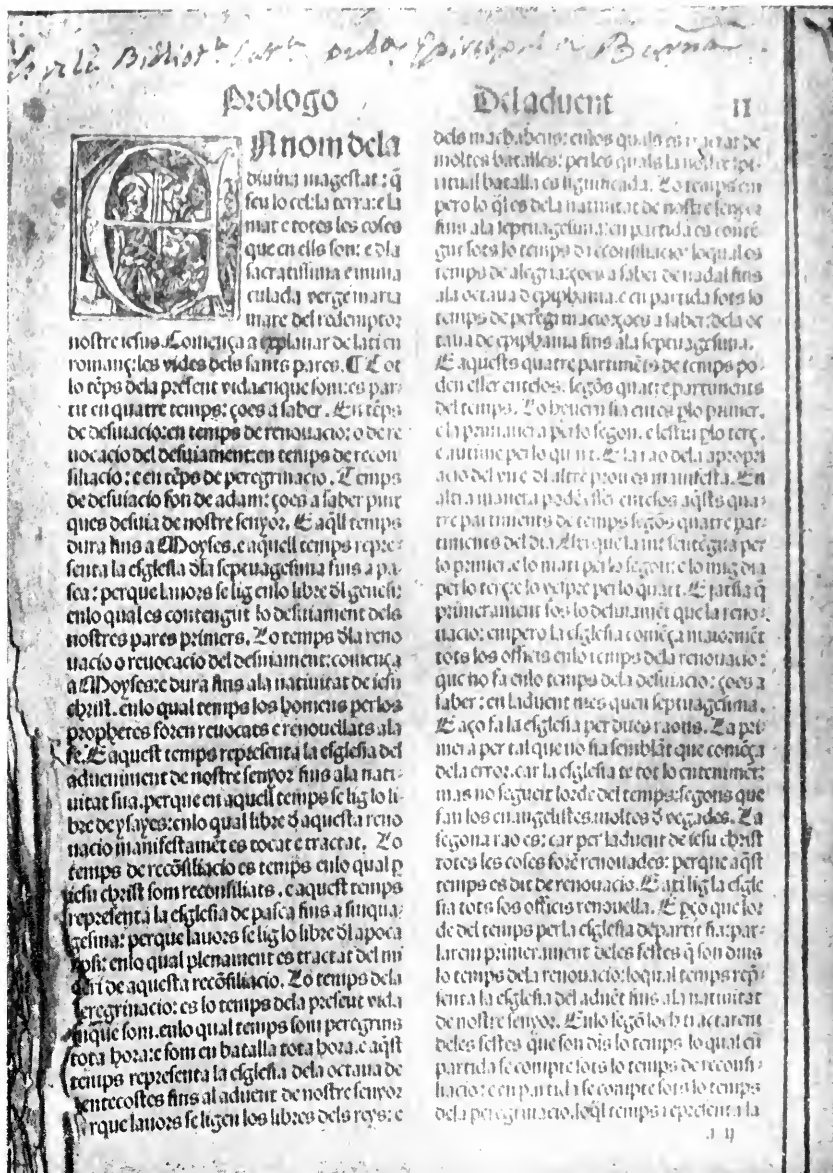 Bibliot
Prologo
EN nom dela
diuina magestat: q̄
feu lo cel: la terra: e la
mar e totes les coses
que en ells son: e dla
sacratissima e inma
culada verge maria
mare del redemptor
nostre iesus. Comença a explanar de lati en
romanç: les vides dels sants pares. ¶ Tot
lo tẽps dela present vida enque som: es par-
tit en quatre temps: ço es a saber. En tẽps
de desuiacio: en temps de renouacio: o de re
uocacio del desuiament: en temps de recon
siliacio: e en tẽps de peregrinacio. Temps
de desuiacio fon de adam: ço es a saber puix
ques desuia de nostre senyor. E aq̄ll temps
dura fins a Moyses. e aquell temps repre-
senta la esglesia dla septuagesima fins a pa-
sca: perque lauors se lig enlo libre dl genesi:
enlo qual es contengut lo desuiament dels
nostres pares primers. Lo temps dla reno
uacio o reuocacio del desuiament: comença
a Moyses: e dura fins ala natiuitat de iesu
christ. enlo qual temps los homens perlos
prophetes foren reuocats e renouellats ala
fe. E aquest temps representa la esglesia del
adueniment de nostre senyor fins ala nati-
uitat sua. perque en aquell temps se lig lo li-
bre de ysayes: enlo qual libre d aquesta reno
uacio manifestamẽt es tocat e tractat. Lo
temps de recõsiliacio es temps enlo qual p
iesu christ som reconsiliats. e aquest temps
representa la esglesia de pasca fins a sinqua-
gesima: perque lauors se lig lo libre dl apoca
lipsi: enlo qual plenament es tractat del mi
steri de aquesta recõsiliacio. Lo temps dela
peregrinacio: es lo temps dela present vida
enque som. enlo qual temps som peregrins
tota hora: e som en batalla tota hora. e aq̄st
temps representa la esglesia dela octaua de
pentecostes fins al aduent de nostre senyor
perque lauors se ligen los libres dels reys: e
Del aduent II
dels machabeus: enlos quals es tractat de
moltes batalles: per les quals la nostre spi-
ritual batalla es significada. Lo temps em
pero lo q̄l es dela natiuitat de nostre senyor
fins ala septuagesima: en partida es contẽ-
gut sots lo temps d reconsiliacio: loqual es
temps de alegria: ço es a saber de nadal fins
ala octaua d epiphania. e en partida sots lo
temps de peregrinacio: ço es a saber: dela oc
taua de epiphania fins ala septuagesima.
E aquests quatre partimẽts de temps po-
den esser entesos. segõs quatre partiments
del temps. Lo hiuern sia entes plo primer.
e la primauera perlo segon. e lestiu plo terç.
e autũne perlo quart. E la rao dela apropri
acio del vn e dl altre prou es manifesta. En
altra manera podẽ esser entesos aq̄sts qua-
tre partiments de temps segõs quatre par-
timents del dia. Axi que la nit sentẽga per
lo primer. e lo mati perlo segon: e lo mig dia
perlo terç: e lo vespre perlo quart. E jatsia q̄
primerament fos lo desuiamẽt que la reno-
uacio: empero la esglesia comẽça maiormẽt
tots los officis enlo temps dela renouacio:
que no fa enlo temps dela desuiacio: ço es a
saber: en laduent mes que en septuagesima.
E aço fa la esglesia per dues raons. La pri
mera per tal que no sia semblãt que comẽça
dela error. car la esglesia te tot lo entenimẽt:
mas no segueix lorde del temps: segons que
fan los euangelistes moltes d vegades. La
segona rao es: car per laduent de iesu christ
totes les coses forẽ renouades: perque aq̄st
temps es dit de renouacio. E axi lig la esgle
sia tots sos officis renouella. E pço que lor
de del temps per la esglesia departit sia: par-
larem primerament deles festes q̄ son dins
lo temps dela renouacio: loqual temps rep̄-
senta la esglesia del aduẽt fins ala natiuitat
de nostre senyor. Enlo segõ loch tractarem
deles festes que son dis lo temps lo qual en
partida se compte sots lo temps de reconsi-
liacio: e en partida se compte sots lo temps
dela peregrinacio. loq̄l temps representa la
a ij